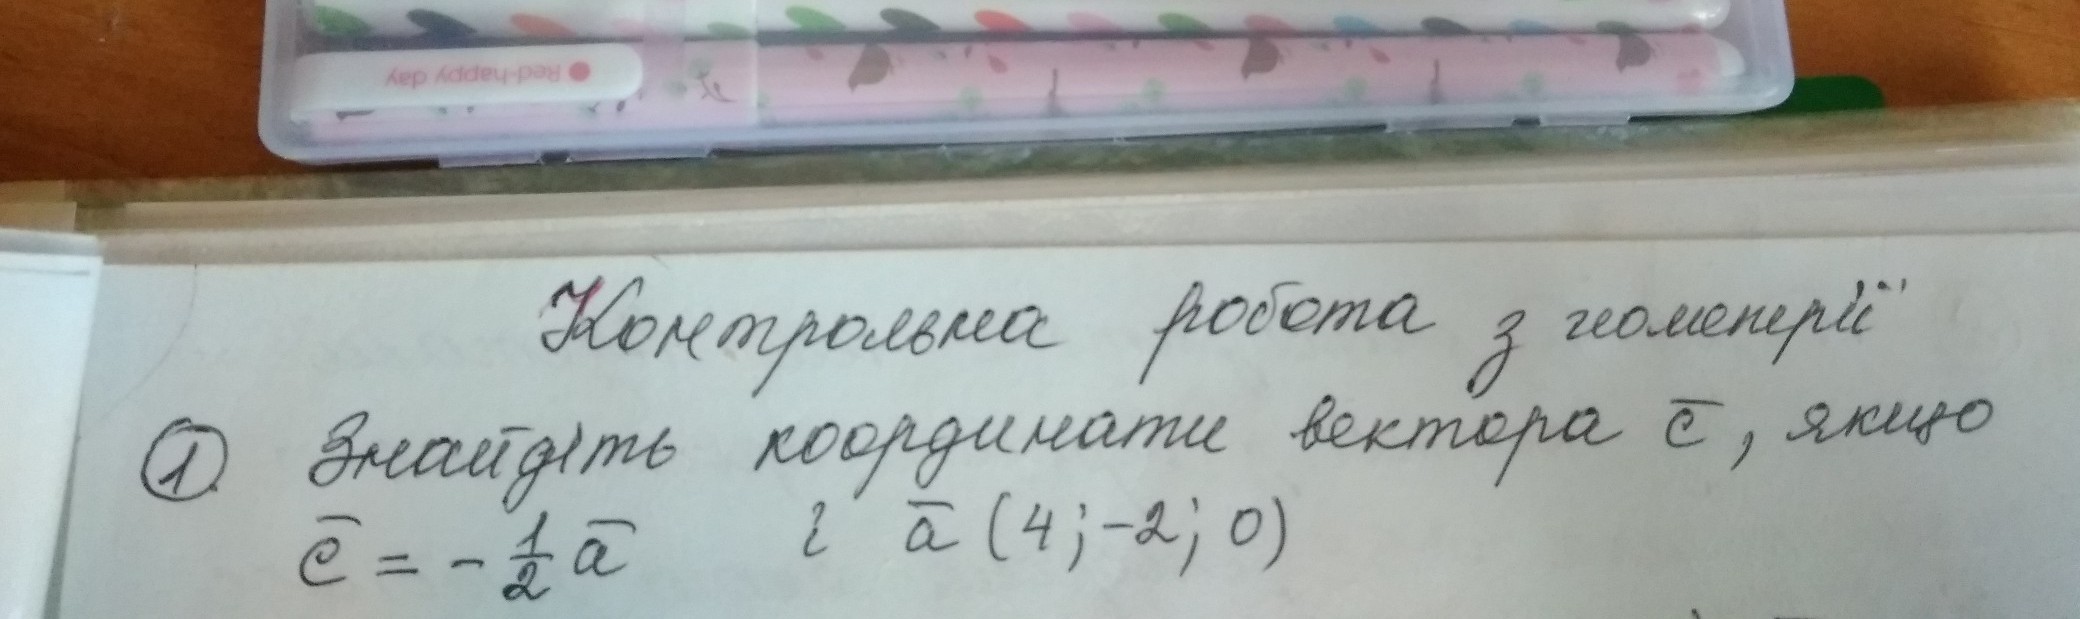 Red-happy day
Контрольна робота з геометрії
1 Знайдіть координати вектора c̅, якщо
c̅ = - 1/2 a̅ і a̅ (4; -2; 0)